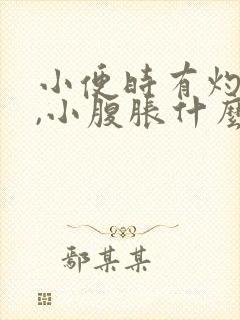 小便时有灼
,小腹胀什麼
鄢某某